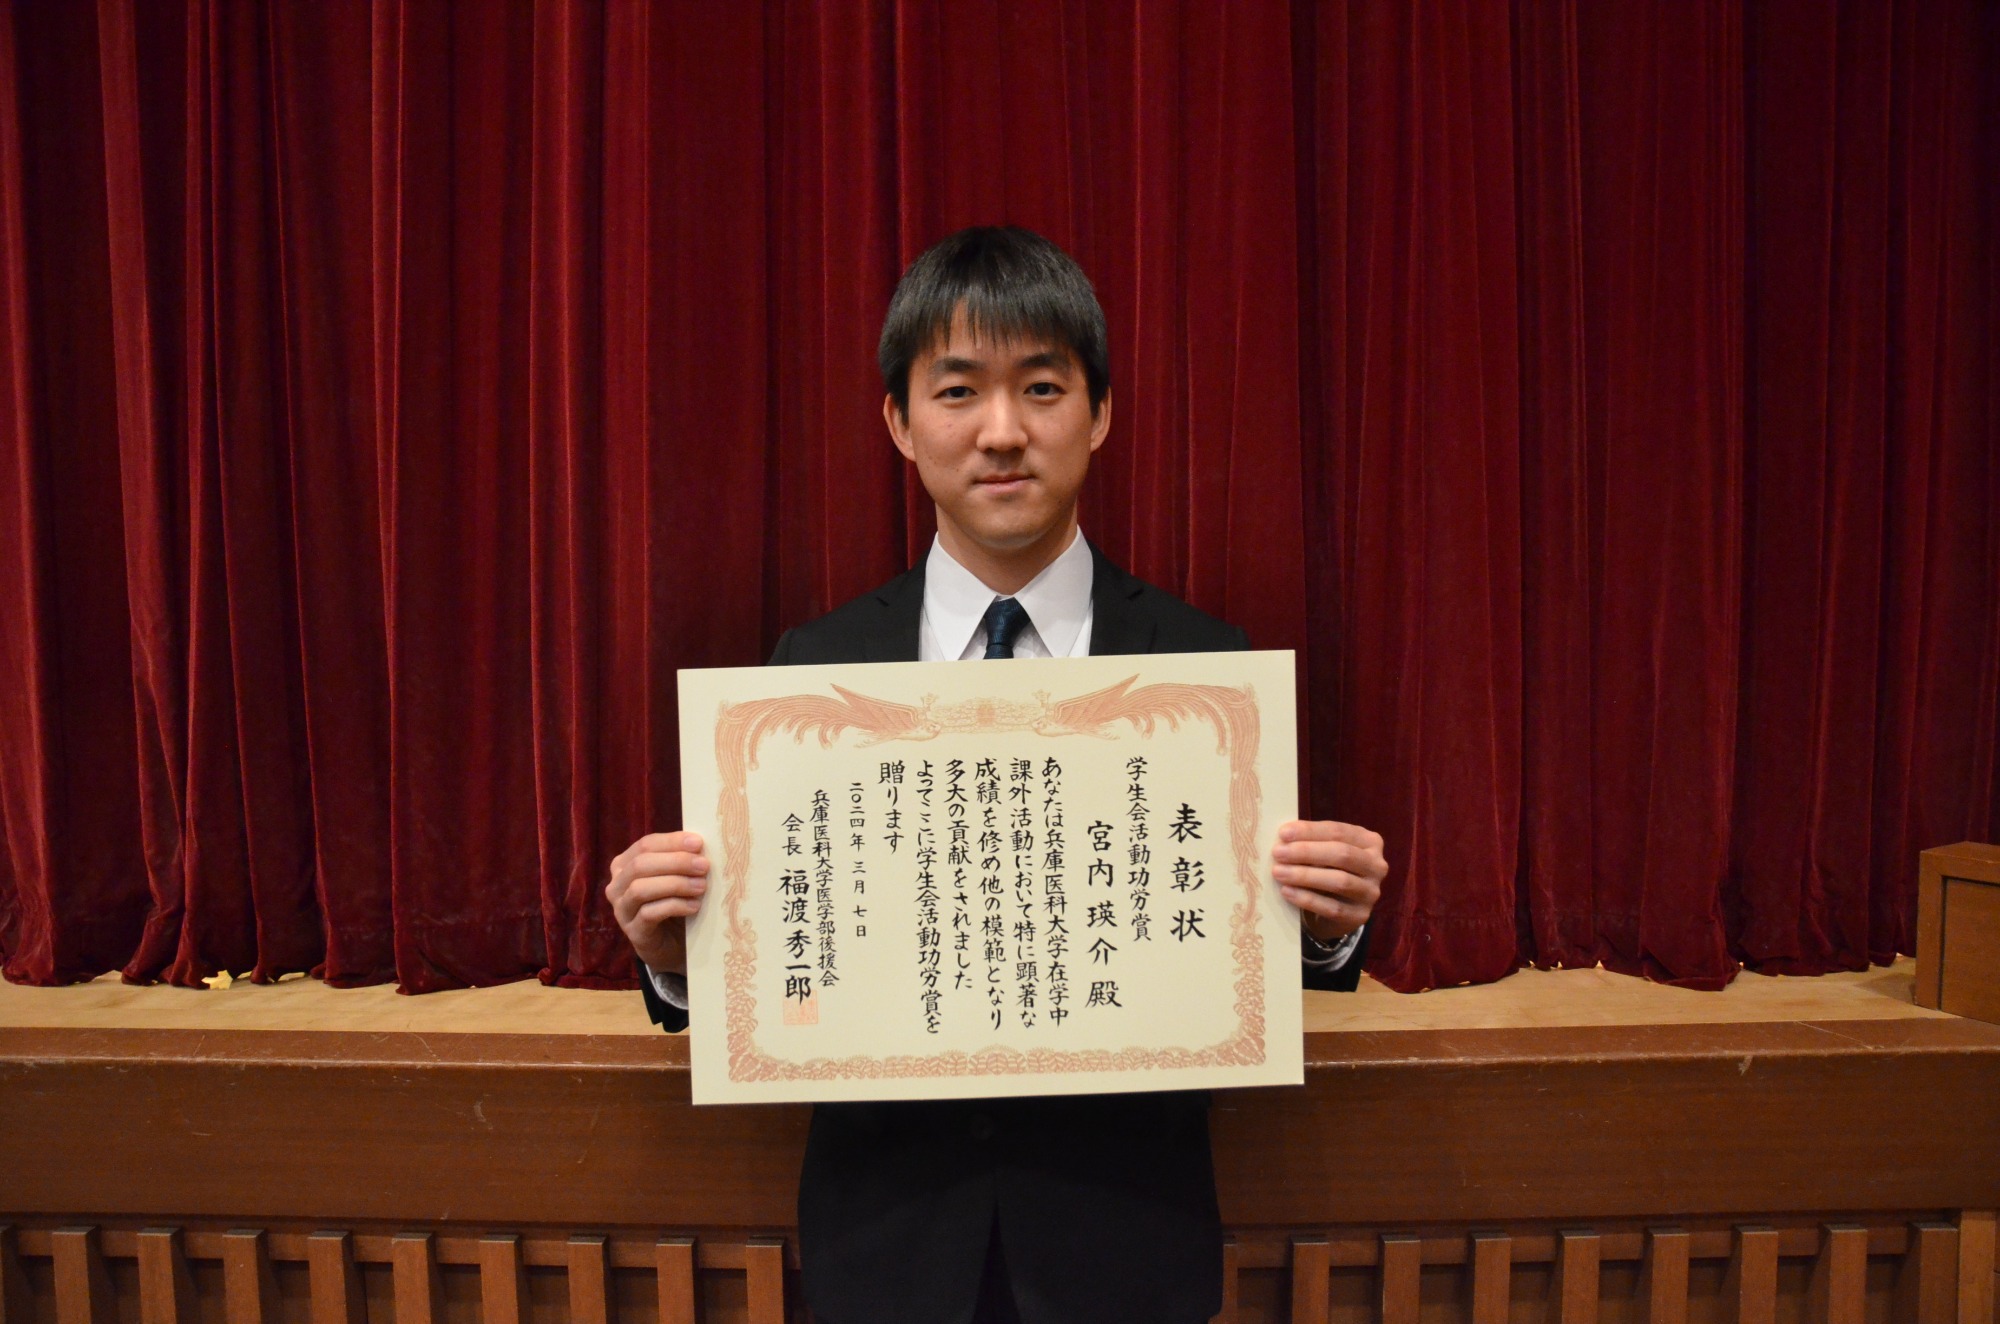 表彰状
学生会活動功労賞
宮内瑛介殿
あなたは兵庫医科大学在学中
課外活動において特に顕著な
成績を修め他の模範となり
多大の貢献をされました
よってここに学生会活動功労賞を
贈ります
二〇二四年三月七日
兵庫医科大学医学部後援会
会長 福渡秀一郎